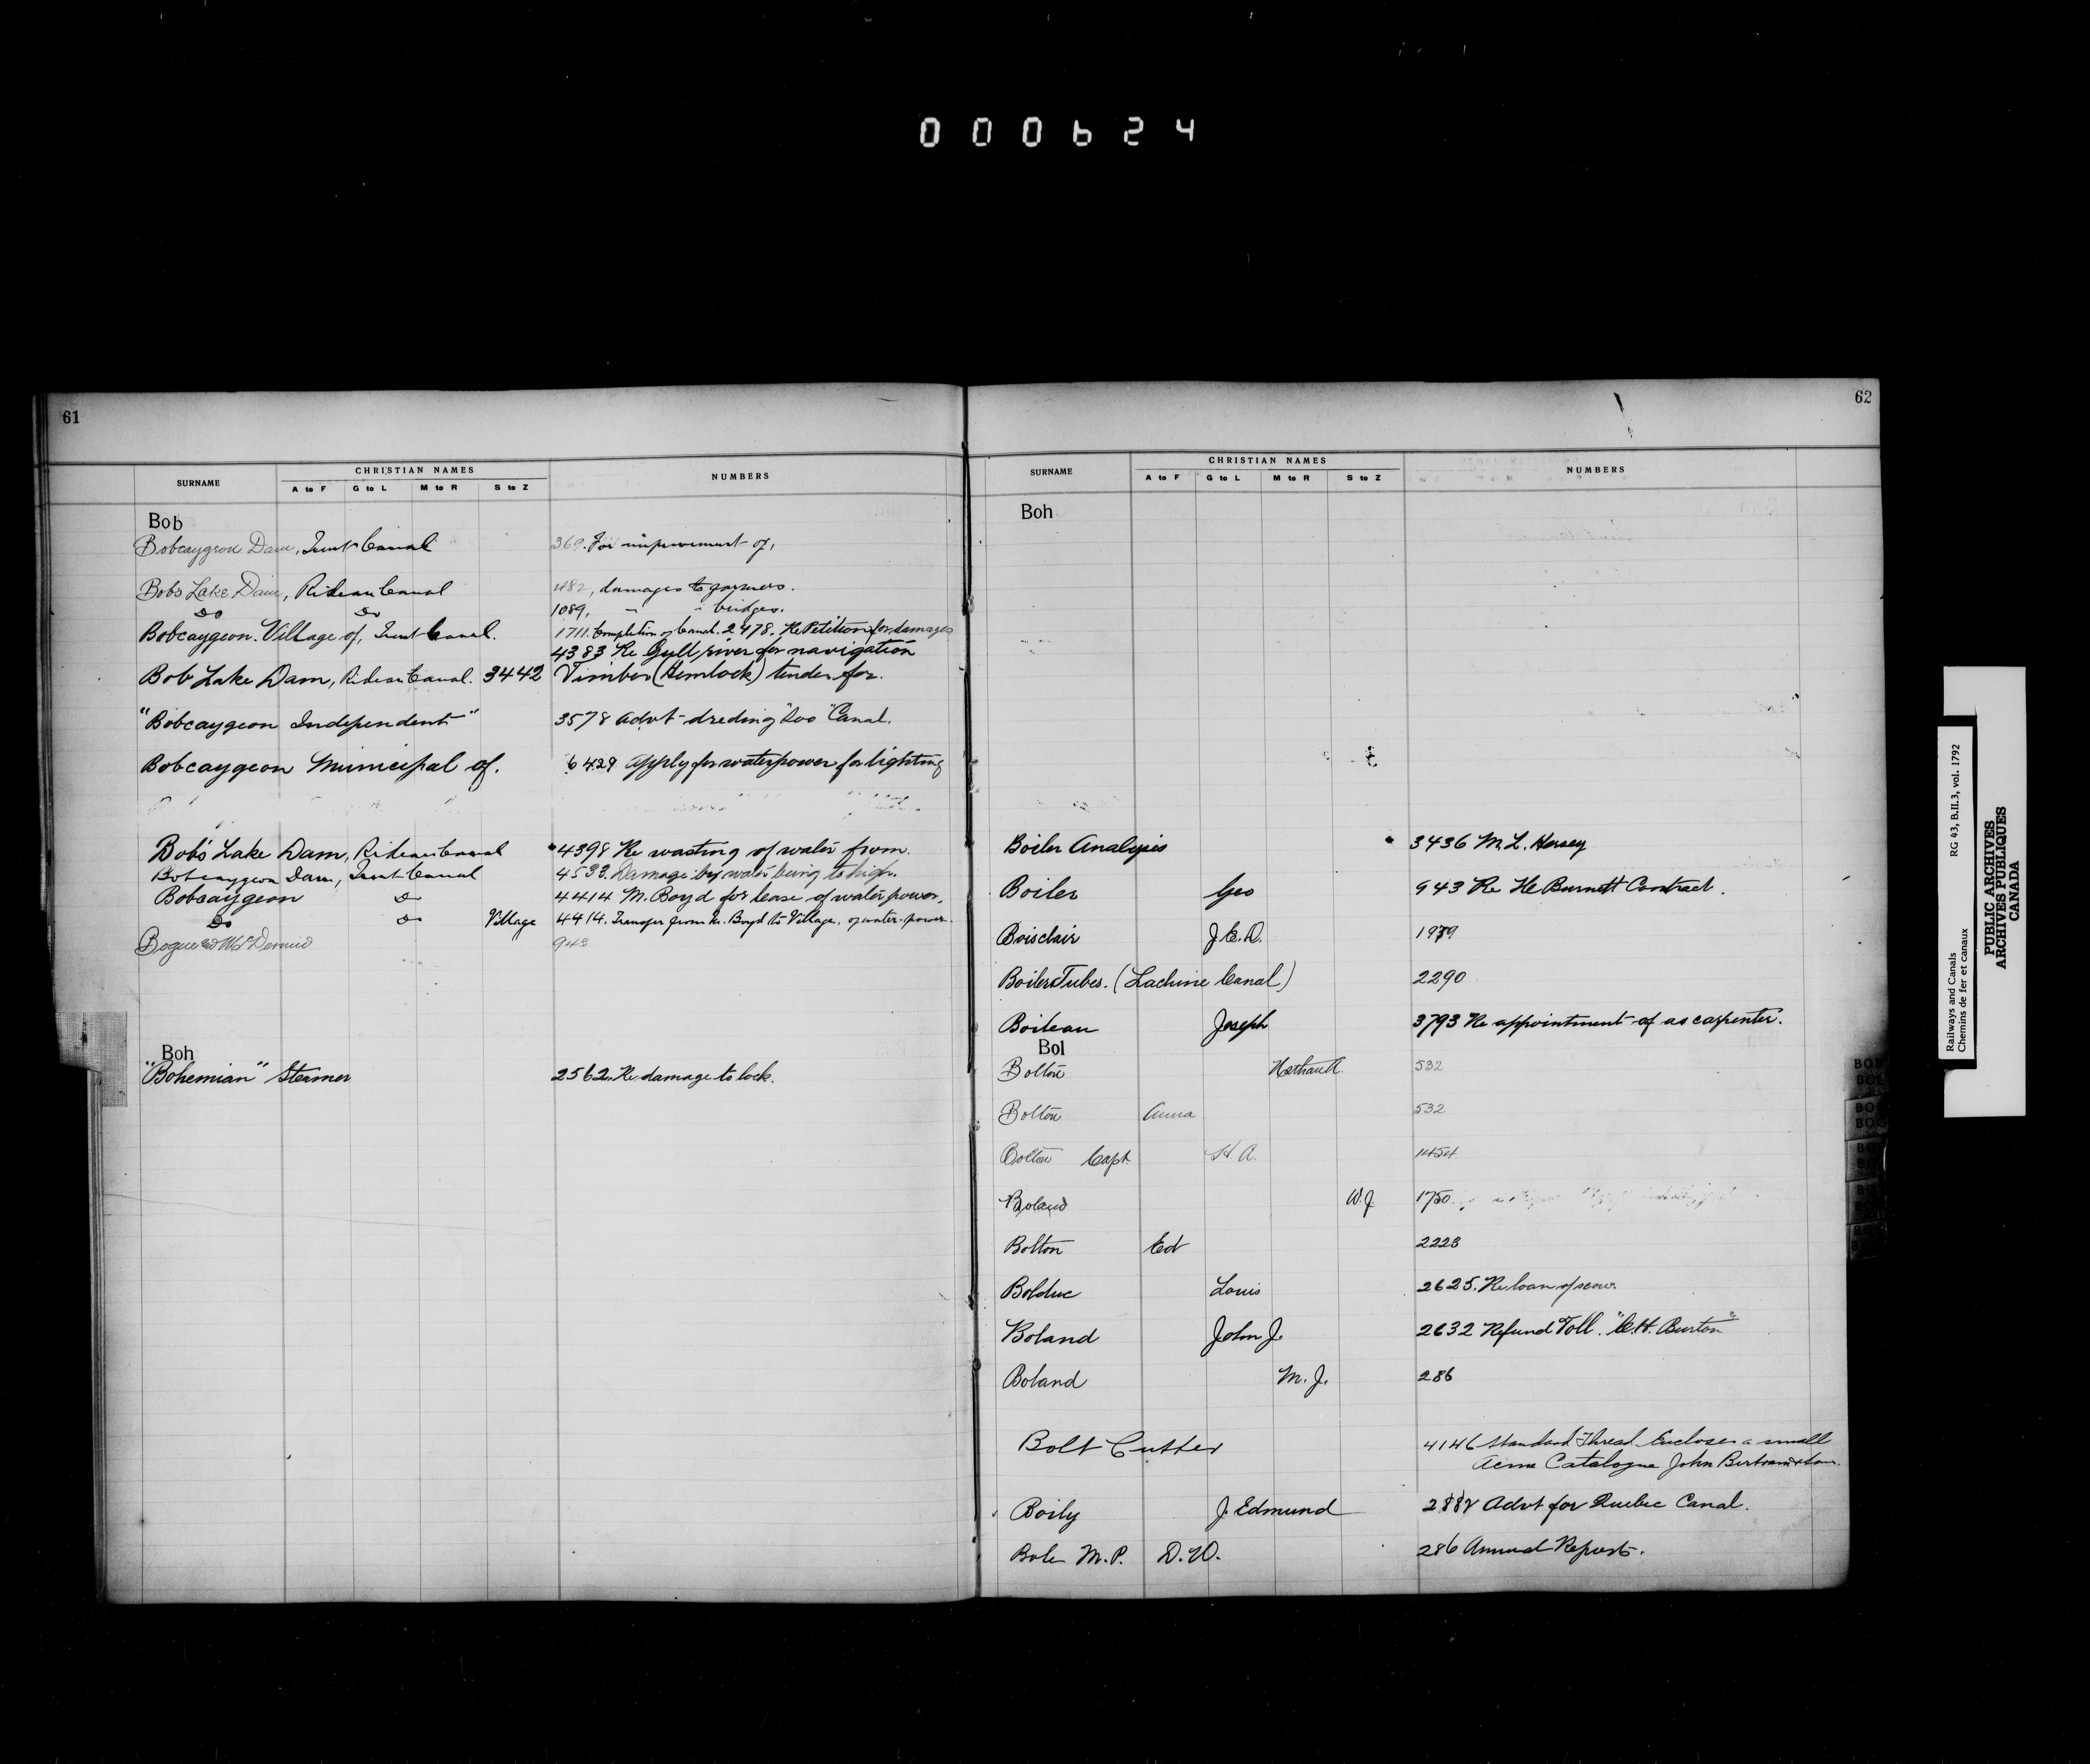 000624
61
SURNAME CHRISTIAN NAMES NUMBERS
A to F G to L M to R S to Z
Bob
Bobcaygeon Dam, Trent Canal 360. For improvement of,
Bobs Lake Dam, Rideau Canal 482, damages to farmers.
Do Do 1089, " " bridges.
Bobcaygeon. Village of, Trent Canal. 1711. Completion of Canal. 2478. Re Petition for damages
4383 Re Gull river for navigation
Bob Lake Dam, Rideau Canal. 3442 Timber (Hemlock) tender for.
"Bobcaygeon Independent" 3578 Advt dreding "Soo" Canal.
Bobcaygeon Municipal of. 6429 Apply for waterpower for lighting
Bob's Lake Dam, Rideau Canal 4398 Re wasting of water from.
Bobcaygeon Dam, Trent Canal 4533. Damage by water being to high.
Bobcaygeon Do 4414 M. Boyd for lease of water power.
Do Do Village 4414. Transfer from M. Boyd to Village, of water-power.
Bogue and McDermid 943
Boh
"Bohemian" Steamer 2562. Re damage to lock.
62
SURNAME CHRISTIAN NAMES NUMBERS
A to F G to L M to R S to Z
Boh
Boiler Analysis 3436 M. L. Hersey
Boiler Geo 943 Re He Burnett Contract.
Boisclair J. E. D. 1979
Boilers Tubes. (Lachine Canal) 2290
Boileau Joseph 3793 Re appointment of as carpenter.
Bol
Bolton 532
Bolton Anna 532
Bolton Capt. H. A. 1454
Boland W. J. 1750
Bolton Ed 2223
Bolduc Louis 2625. Re loan of scow.
Boland John J. 2632 Refund Toll. "C. H. Burton"
Boland M. J. 286
Bolt Cutter 4146 Standard Thread Encloses a small
Acme Catalogue John Bertram & Sons.
Boily J. Edmund 2882 Advt for Quebec Canal.
Bole M. P. D. W. 286 Annual Reports.
BOB
Railways and Canals RG 43, B.II.3, vol. 1792
Chemins de fer et canaux
PUBLIC ARCHIVES
ARCHIVES PUBLIQUES
CANADA